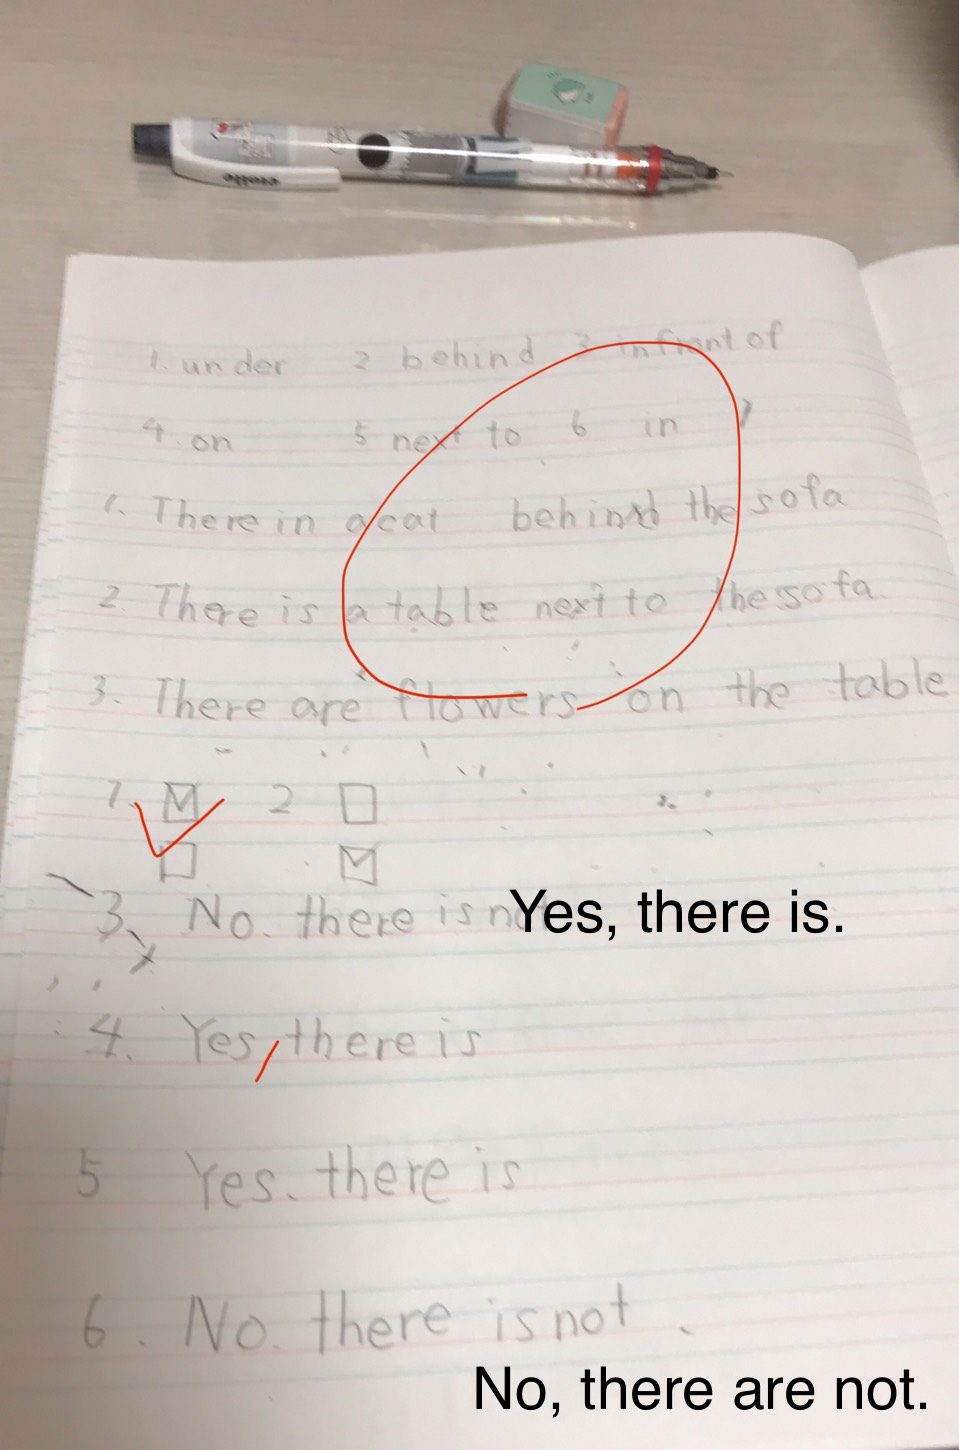 1. under 2 behind 3 infront of
4 on 5 next to 6 in
1. There in a cat behind the sofa
2. There is a table next to the sofa.
3. There are flowers on the table
1. 2
3. No. there is
Yes, there is.
4. Yes, there is
5 Yes. there is
6. No. there is not.
No, there are not.